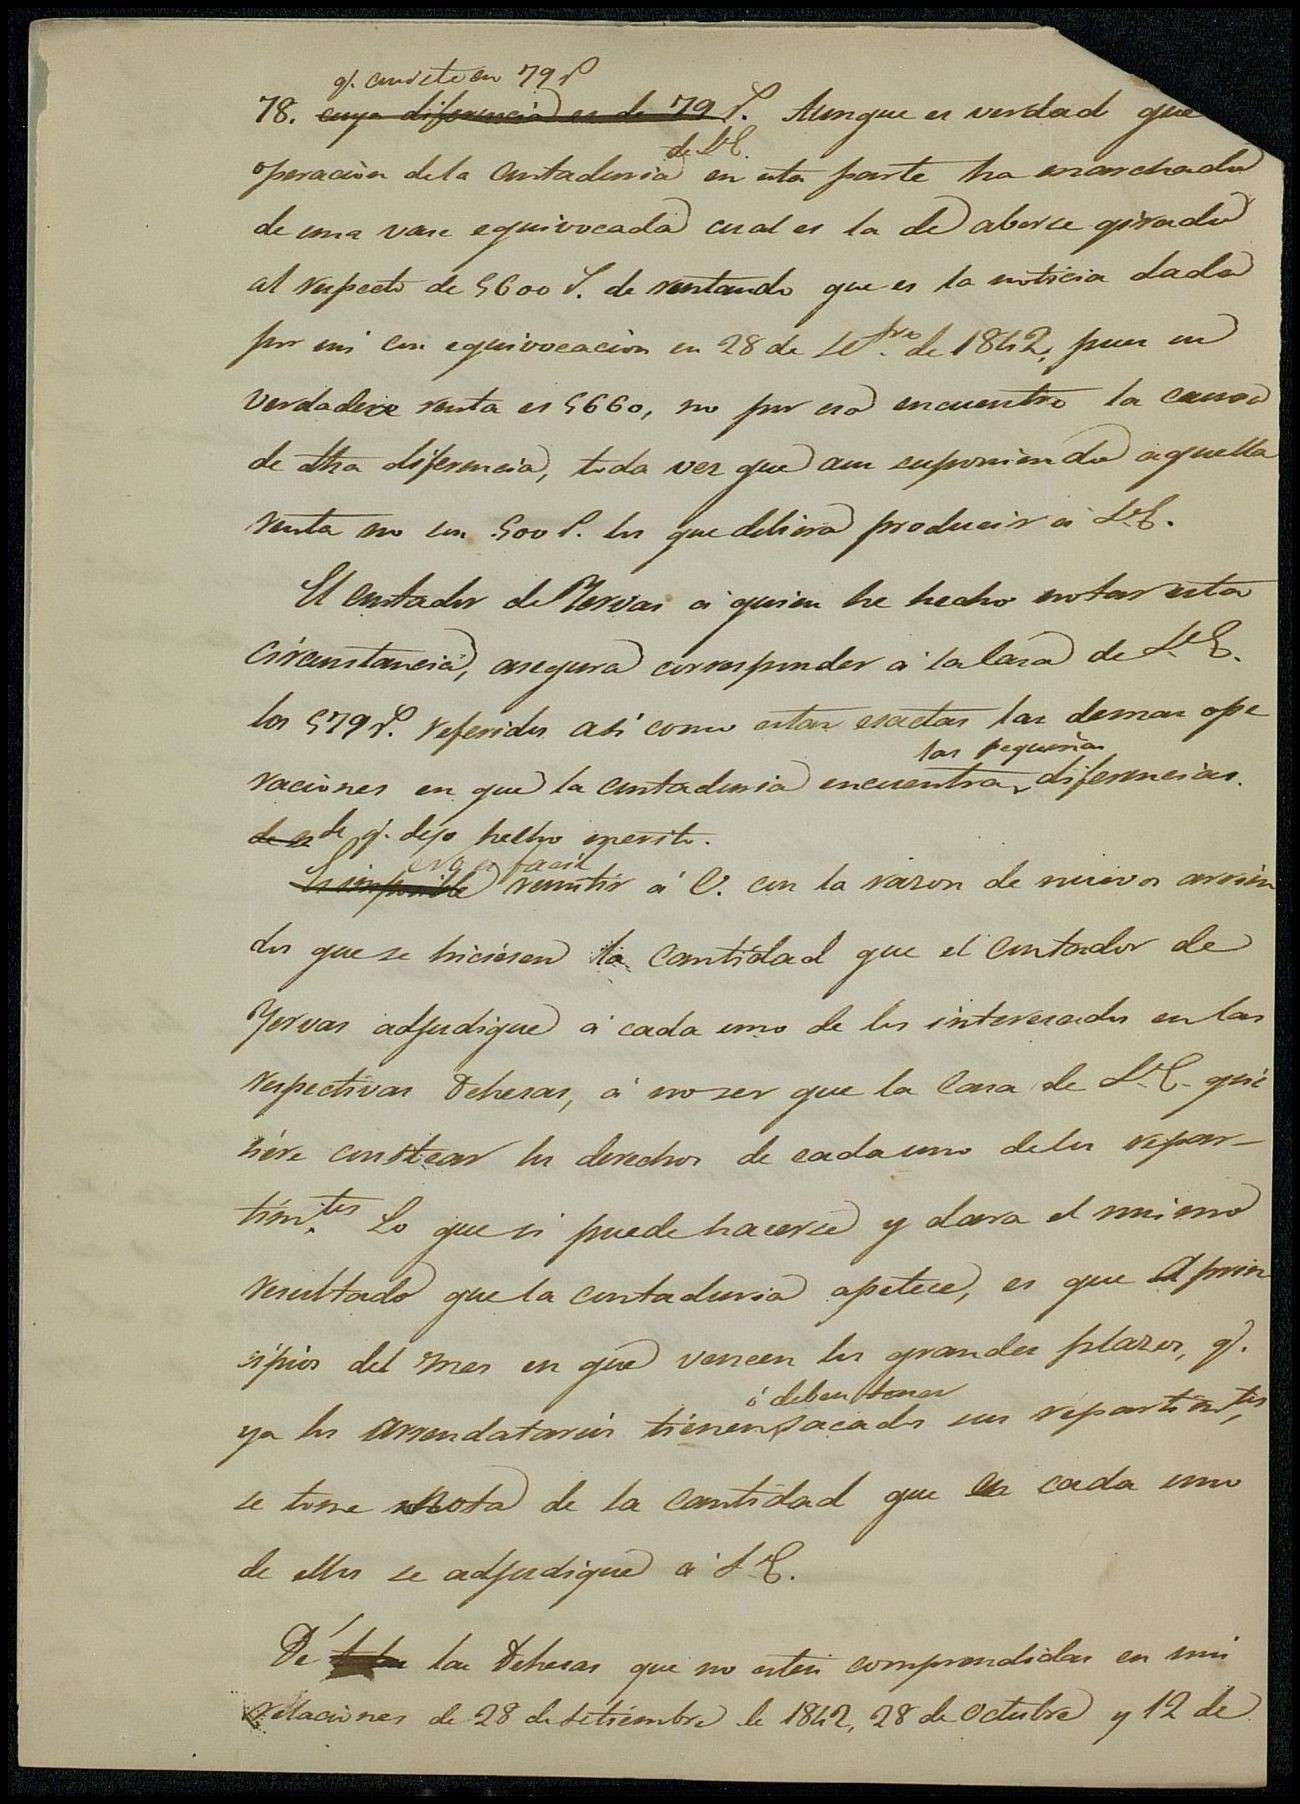 q.^e consiste en 79 r^s
78. cuya diferencia es de 79 r^s. Aunque es verdad que
de S.E.
operacion de la Contaduria en esta parte ha marchado
de una vase equivocada cual es la de aberse girado
al respecto de 5600 r^s. de rentando que es la noticia dada
por mi con equivocacion en 28 de Set.^bre de 1842, pues su
verdadera renta es 5660, no por eso encuentro la causa
de dha diferencia, toda vez que aun suponiendo aquella
renta no son 500 r^s. los que debiera producir á S.E.
El Contador de Yervas á quien he hecho notar esta
circunstancia, asegura corresponder á la Casa de S.E.
los 579 r^s. referidos así como estar esactas las demas ope
las pequeñas
raciones en que la contaduria encuentra diferencias.
de q.^e dejo hecho merito.
no es facil
Es imposible remitir á V. con la razon de nuevos arrien
dos que se hiciesen la cantidad que el contador de
Yervas adjudique á cada uno de los interesados en las
respectivas Dehesas, á no ser que la Casa de S.E. qui
siere costear los derechos de cada uno de los repar-
tim.^tos Lo que si puede hacerse y dara el mismo
resultado que la contaduria apetece, es que á prin
cipios del mes en que vencen los grandes plazos, q.^e
ó deben tener
ya los arrendatarios tienen sacado sus repartim.^tos,
se tome nota de la cantidad que en cada uno
de ellos se adjudique á S.E.
De las Dehesas que no esten comprendidas en mis
relaciones de 28 de Setiembre de 1842, 28 de Octubre y 12 de